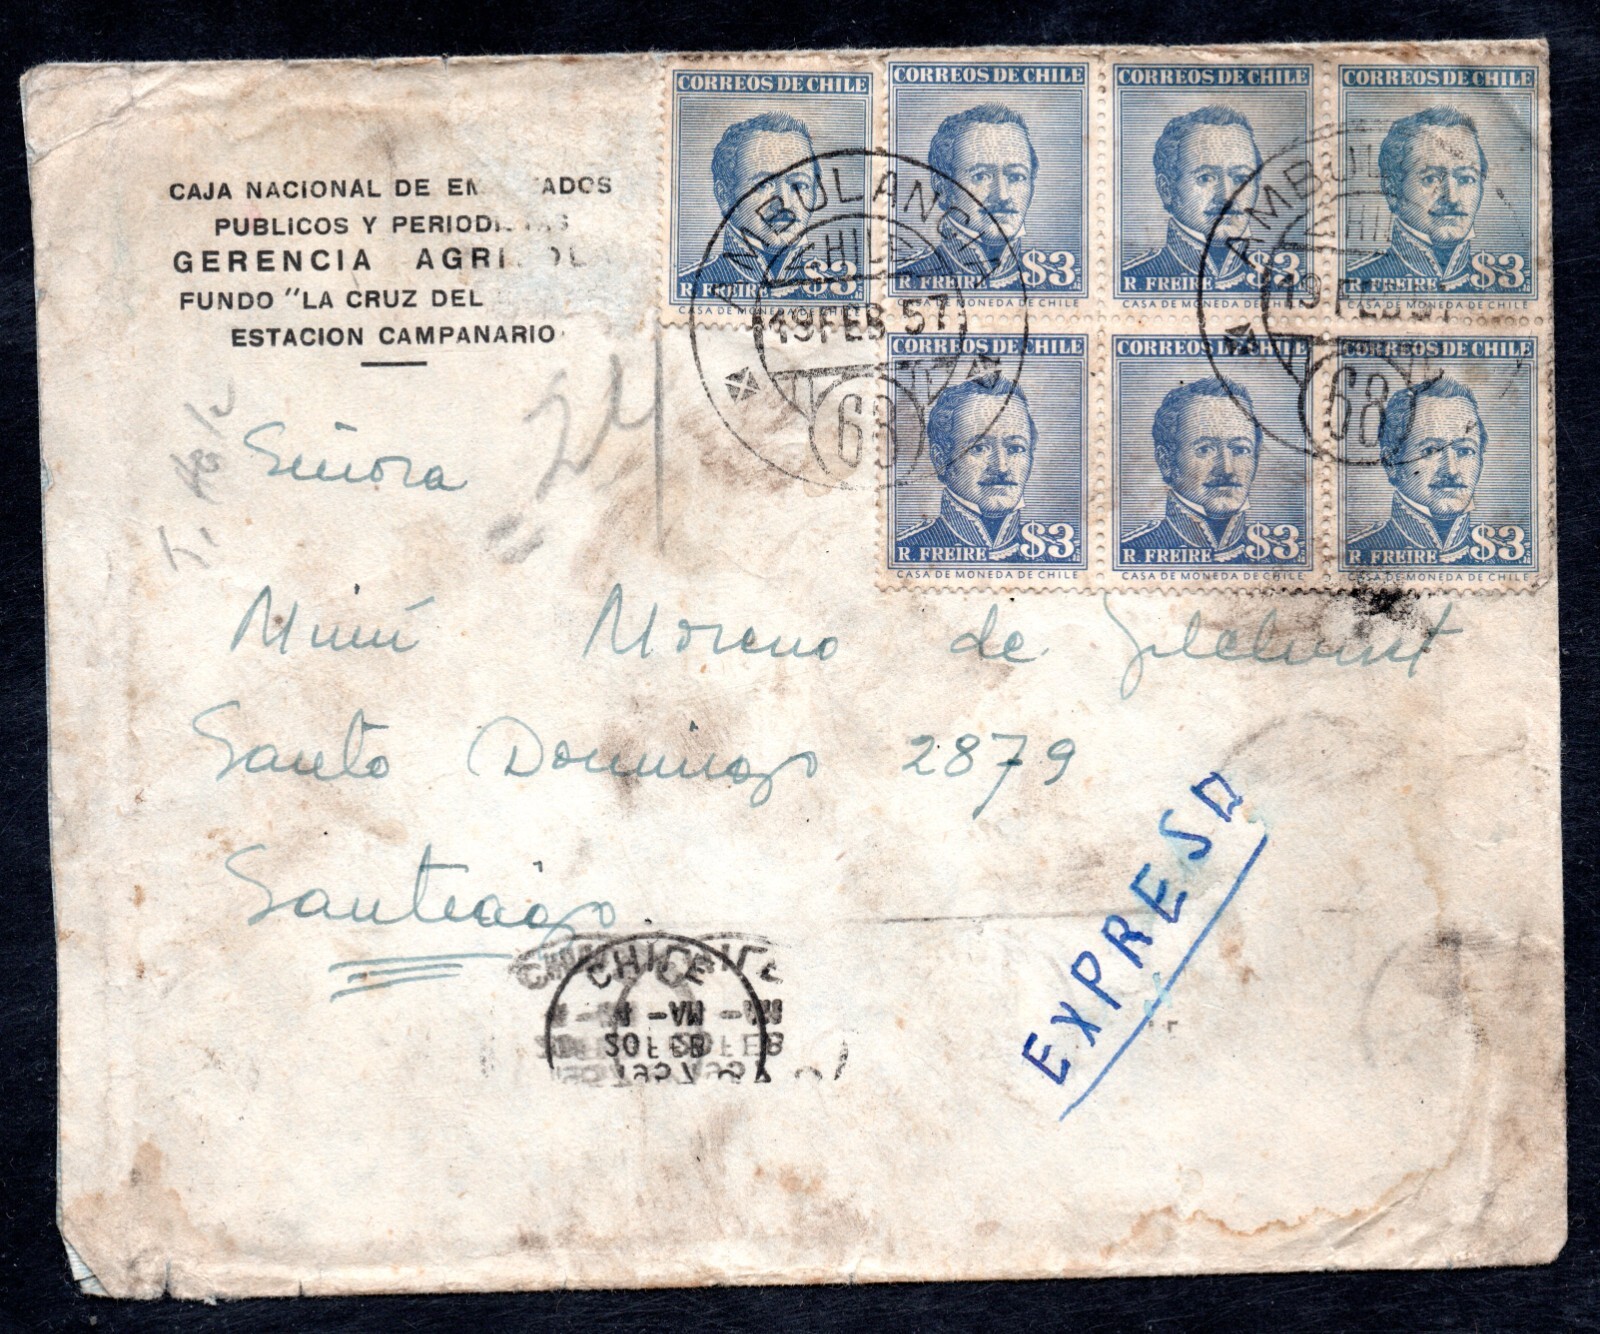 CAJA NACIONAL DE EM ADOS
PUBLICOS Y PERIODI AS
GERENCIA AGRI OL
FUNDO "LA CRUZ DEL
ESTACION CAMPANARIO
CORREOS DE CHILE
R. FREIRE $3
CASA DE MONEDA DE CHILE
CORREOS DE CHILE
R. FREIRE $3
CASA DE MONEDA DE CHILE
CORREOS DE CHILE
R. FREIRE $3
CASA DE MONEDA DE CHILE
CORREOS DE CHILE
R. FREIRE $3
CASA DE MONEDA DE CHILE
CORREOS DE CHILE
R. FREIRE $3
CASA DE MONEDA DE CHILE
CORREOS DE CHILE
R. FREIRE $3
CASA DE MONEDA DE CHILE
CORREOS DE CHILE
R. FREIRE $3
CASA DE MONEDA DE CHILE
AMBULANCIA
CHILE
19 FEB 57
68
AMBUL
CHI
19 FEB 57
68
24
Señora
Mimí Moreno de
Santo Domingo 2879
Santiago
EXPRESO
CHILE
20 FEB
1957